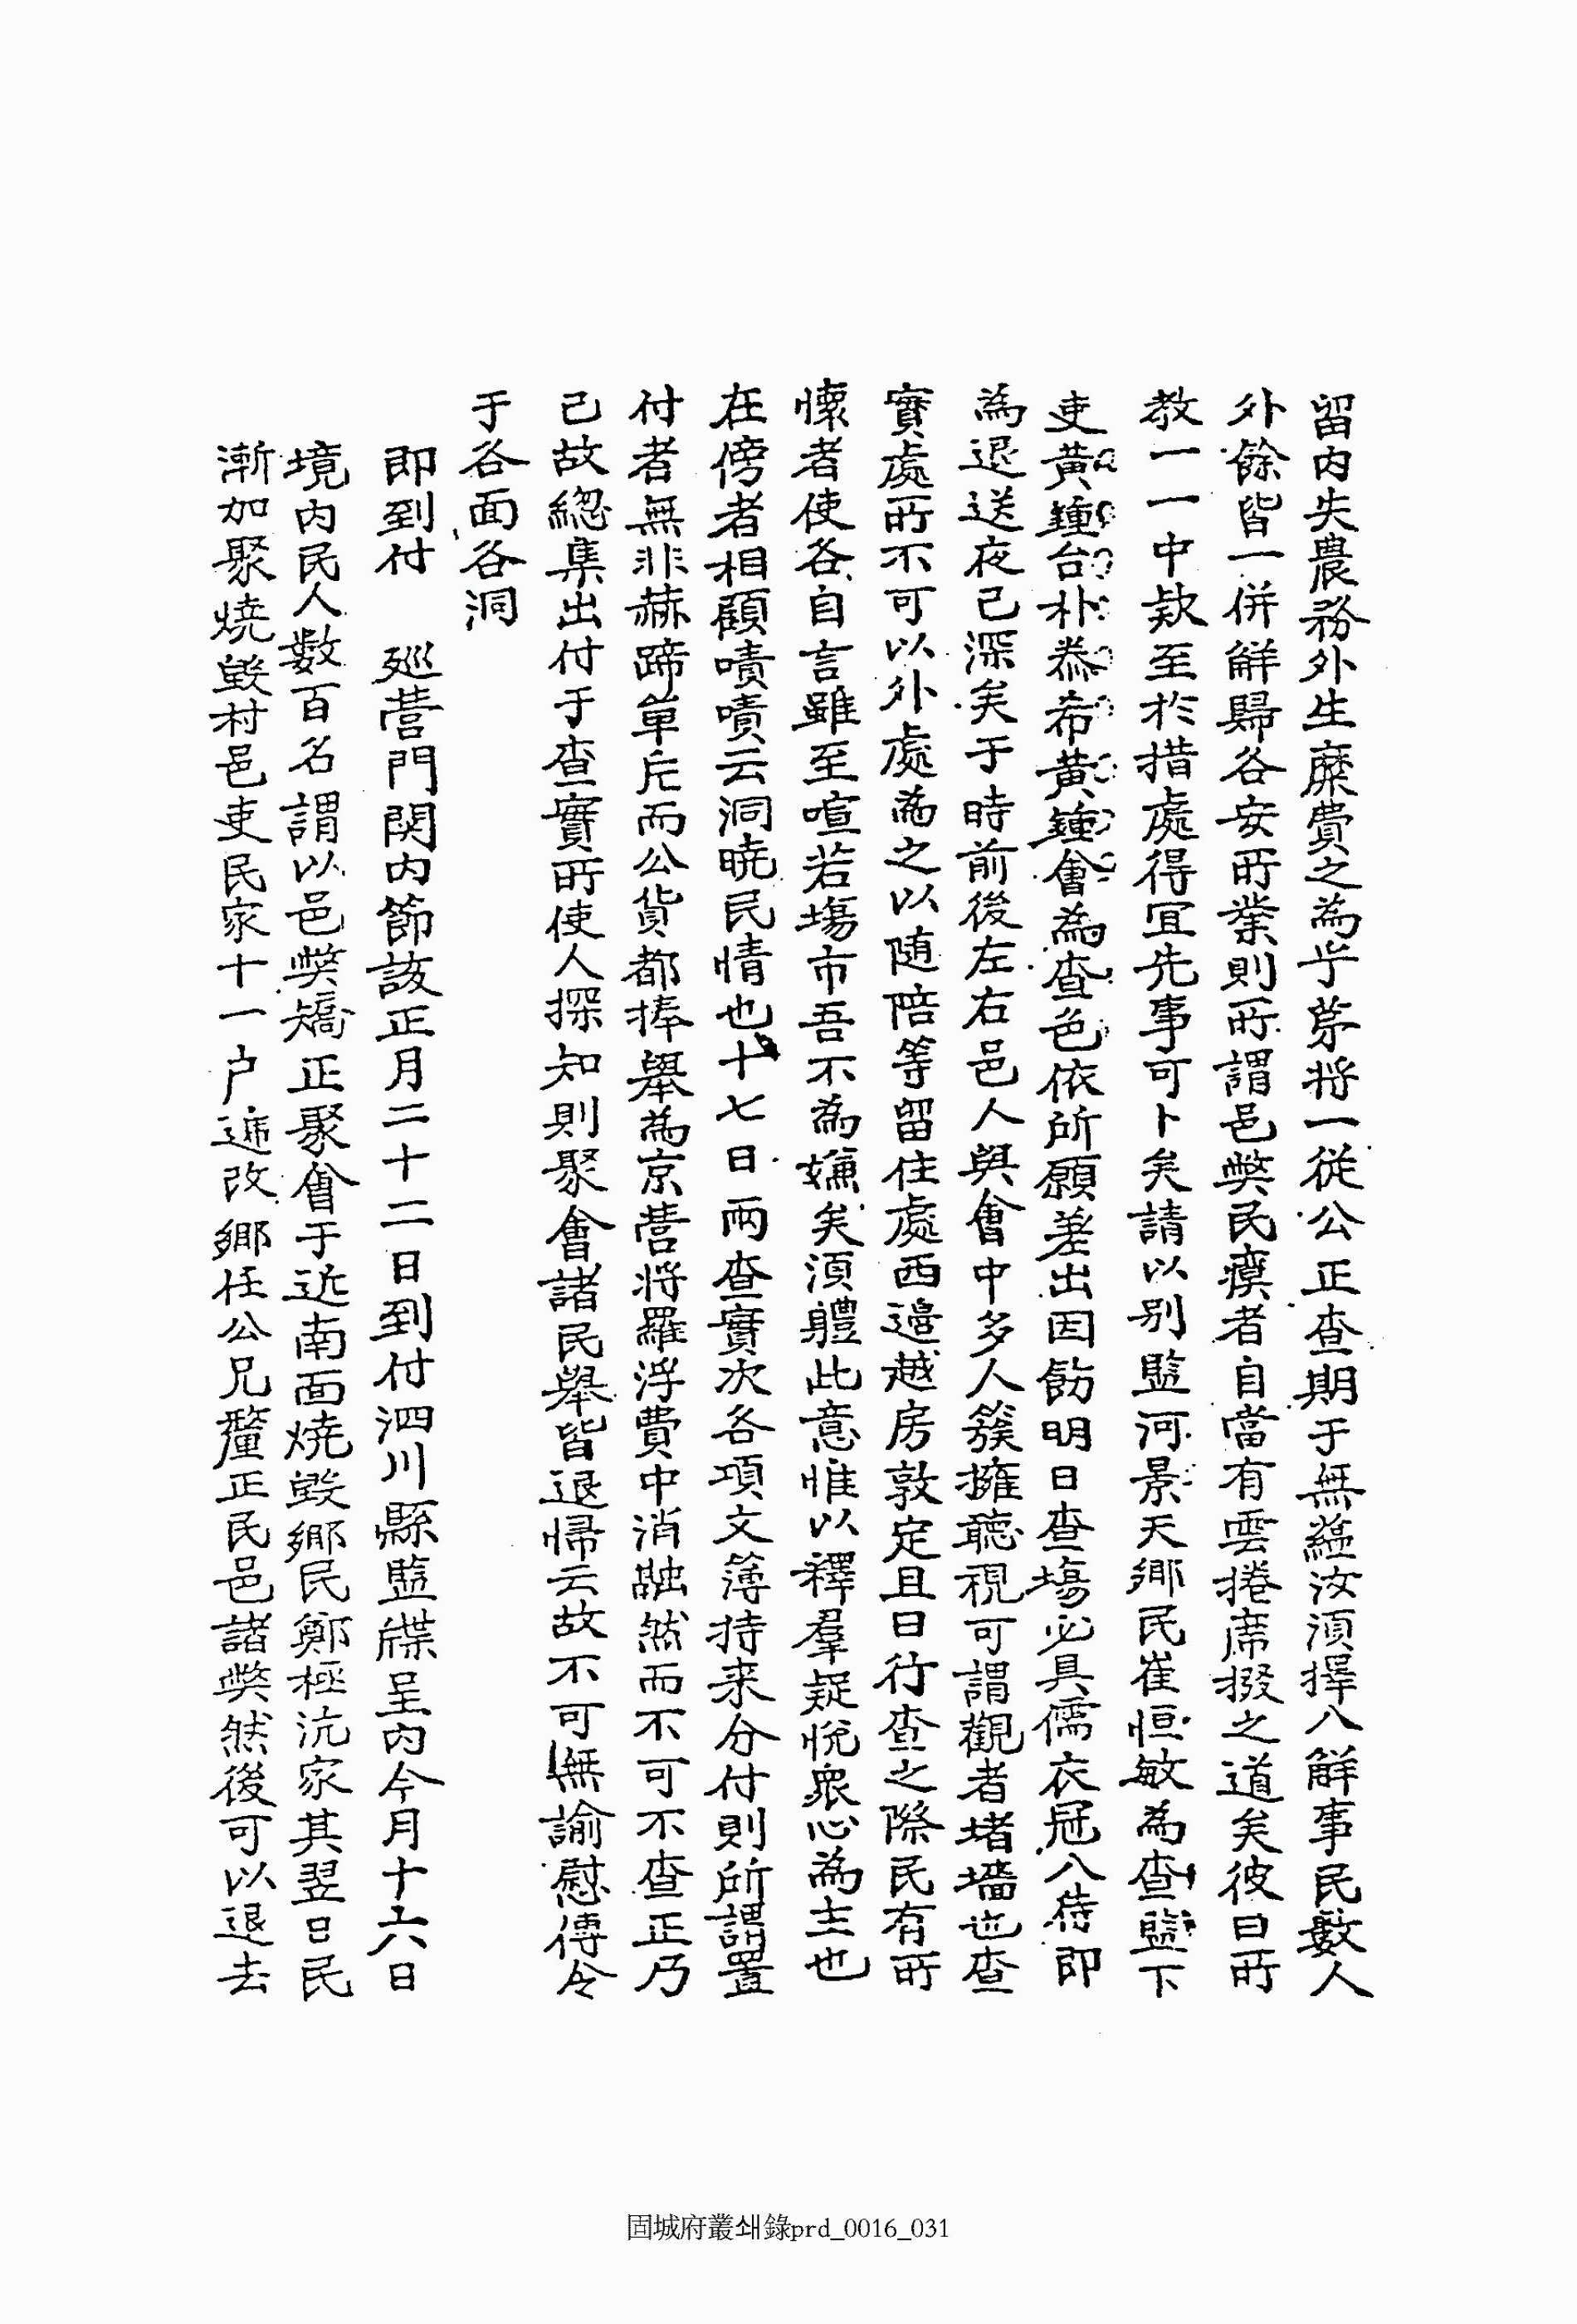 留內失農務外生糜費之為乎茅將一從公正查期于無蘊汝須擇八解事民數人
外餘皆一併解歸各安所業則所謂邑弊民瘼者自當有雲捲席掇之道矣彼曰所
教一一中款至於措處得冝先事可卜矣請以別監河景天鄉民崔恒敏為查監下
吏黃鍾台朴恭希黃鍾會為查色依所願差出因飭明日查塲必具儒衣冠八待即
為退送夜已深矣于時前後左右邑人與會中多人簇擁聽視可謂觀者堵墻也查
實處所不可以外處為之以随陪等留住處西邉越房敦定且日行查之際民有所
懷者使各自言雖至喧若塲市吾不為嫌矣須軆此意惟以釋羣疑悅衆心為主也
在傍者相顧嘖嘖云洞曉民情也十七日兩查實次各項文簿持来分付則所謂置
付者無非赫蹄单片而公貨都捧舉為京營將羅浮費中消融然而不可不查正乃
已故緫集出付于查實所使人探知則聚會諸民舉皆退帰云故不可無諭慰傳令
于各面各洞
即到付 廵營門関內節該正月二十二日到付泗川縣監牒呈內今月十六日
境內民人數百名謂以邑弊矯正聚會于近南面燒毀鄉民鄭極沆家其翌日民
漸加聚燒毀村邑吏民家十一户遞改鄉任公兄釐正民邑諸弊然後可以退去
固城府叢쇄錄prd_0016_031